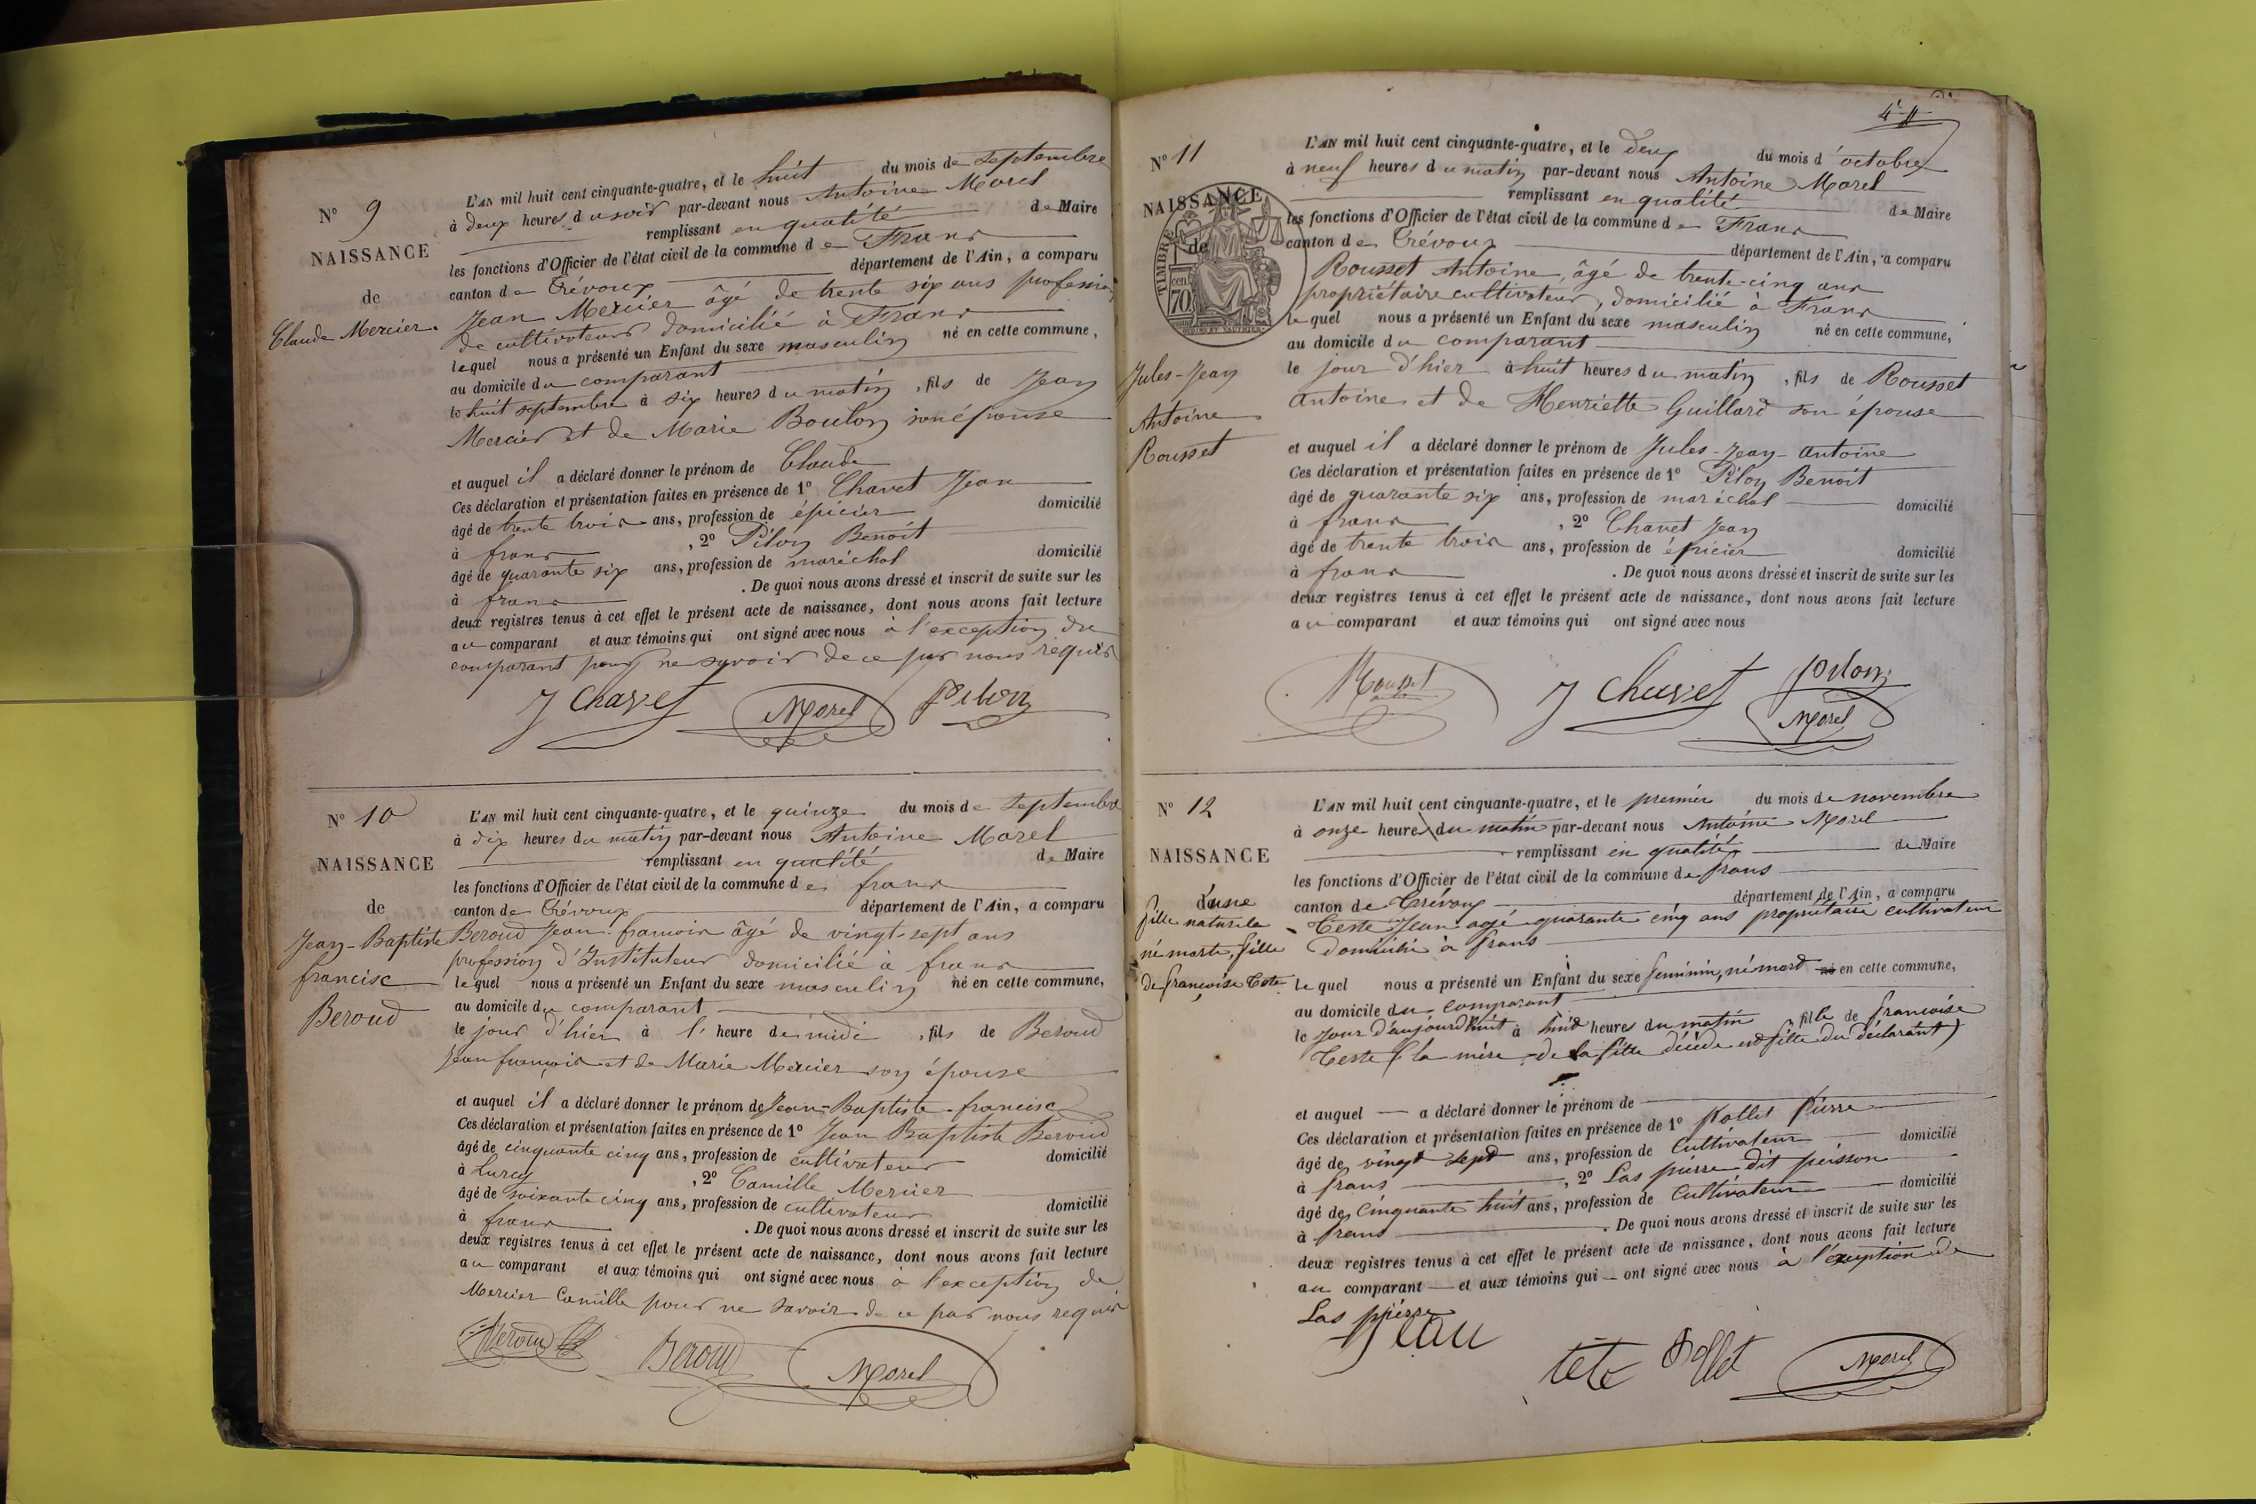 N° 9
NAISSANCE
de
Claude Mercier.
L'AN mil huit cent cinquante-quatre, et le huit du mois de septembre
à deux heures du soir par-devant nous Antoine Morel
remplissant en qualité de Maire
les fonctions d'Officier de l'état civil de la commune de Frans
canton de Trévoux département de l'Ain, a comparu
Jean Mercier âgé de trente six ans profession
de cultivateur domicilié à Frans
lequel nous a présenté un Enfant du sexe masculin né en cette commune,
au domicile du comparant
le huit septembre à six heures du matin, fils de Jean
Mercier et de Marie Boulon son épouse
et auquel il a déclaré donner le prénom de Claude
Ces déclaration et présentation faites en présence de 1° Chavet Jean
âgé de trente trois ans, profession de épicier domicilié
à frans, 2° Pilon Benoit
âgé de quarante six ans, profession de maréchal domicilié
à frans. De quoi nous avons dressé et inscrit de suite sur les
deux registres tenus à cet effet le présent acte de naissance, dont nous avons fait lecture
au comparant et aux témoins qui ont signé avec nous à l'exception du
comparant pour ne savoir de ce par nous requis
J Chavet Morel Pilon
N° 10
NAISSANCE
de
Jean-Baptiste
francisc
Beroud
L'AN mil huit cent cinquante-quatre, et le quinze du mois de septembre
à dix heures du matin par-devant nous Antoine Morel
remplissant en qualité de Maire
les fonctions d'Officier de l'état civil de la commune de frans
canton de Trévoux département de l'Ain, a comparu
Beroud Jean-francois âgé de vingt-sept ans
profession d'Instituteur domicilié à frans
lequel nous a présenté un Enfant du sexe masculin né en cette commune,
au domicile du comparant
le jour d'hier à l'heure de midi, fils de Beroud
Jean françois et de Marie Mercier son épouse
et auquel il a déclaré donner le prénom de Jean-Baptiste-francisc
Ces déclaration et présentation faites en présence de 1° Jean Baptiste Beroud
âgé de cinquante cinq ans, profession de cultivateur domicilié
à Lurcy, 2° Camille Mercier
âgé de soixante cinq ans, profession de cultivateur domicilié
à frans. De quoi nous avons dressé et inscrit de suite sur les
deux registres tenus à cet effet le présent acte de naissance, dont nous avons fait lecture
au comparant et aux témoins qui ont signé avec nous à l'exception de
Mercier Camille pour ne savoir de ce par nous requis
Beroud Beroud Morel
N° 11
NAISSANCE
de
TIMBRE
70
Jules-Jean
Antoine
Rousset
L'AN mil huit cent cinquante-quatre, et le deux du mois d'octobre
à neuf heures du matin par-devant nous Antoine Morel
remplissant en qualité de Maire
les fonctions d'Officier de l'état civil de la commune de Frans
canton de Trévoux département de l'Ain, a comparu
Rousset Antoine, âgé de trente-cinq ans
propriétaire cultivateur, domicilié à Frans
lequel nous a présenté un Enfant du sexe masculin né en cette commune,
au domicile du comparant
le jour d'hier à huit heures du matin, fils de Rousset
Antoine et de Henriette Guillard son épouse
et auquel il a déclaré donner le prénom de Jules-Jean-Antoine
Ces déclaration et présentation faites en présence de 1° Pilon Benoit
âgé de quarante six ans, profession de maréchal domicilié
à frans, 2° Chavet Jean
âgé de trente trois ans, profession de épicier domicilié
à frans. De quoi nous avons dressé et inscrit de suite sur les
deux registres tenus à cet effet le présent acte de naissance, dont nous avons fait lecture
au comparant et aux témoins qui ont signé avec nous
Rousset J Chavet Pilon
Morel
N° 12
NAISSANCE
d'une
fille naturelle
né morte, fille
de françoise Teste
L'AN mil huit cent cinquante-quatre, et le premier du mois de novembre
à onze heures du matin par-devant nous Antoine Morel
remplissant en qualité de Maire
les fonctions d'Officier de l'état civil de la commune de frans
canton de Trévoux département de l'Ain, a comparu
Teste Jean agé quarante cinq ans propriétaire cultivateur
domicilié à frans
lequel nous a présenté un Enfant du sexe feminin, né mort né en cette commune,
au domicile du comparant
le jour d'aujourd'huit à huit heures du matin fille de françoise
Teste (la mère de la fille décédé est fille du déclarant)
et auquel — a déclaré donner le prénom de
Ces déclaration et présentation faites en présence de 1° Rollet Pierre
âgé de vingt sept ans, profession de Cultivateur domicilié
à frans, 2° Las pierre dit peisson
âgé de Cinquante huit ans, profession de Cultivateur domicilié
à frans. De quoi nous avons dressé et inscrit de suite sur les
deux registres tenus à cet effet le présent acte de naissance, dont nous avons fait lecture
au comparant — et aux témoins qui — ont signé avec nous à l'exception de
Las pierre
Jean tete Rollet Morel